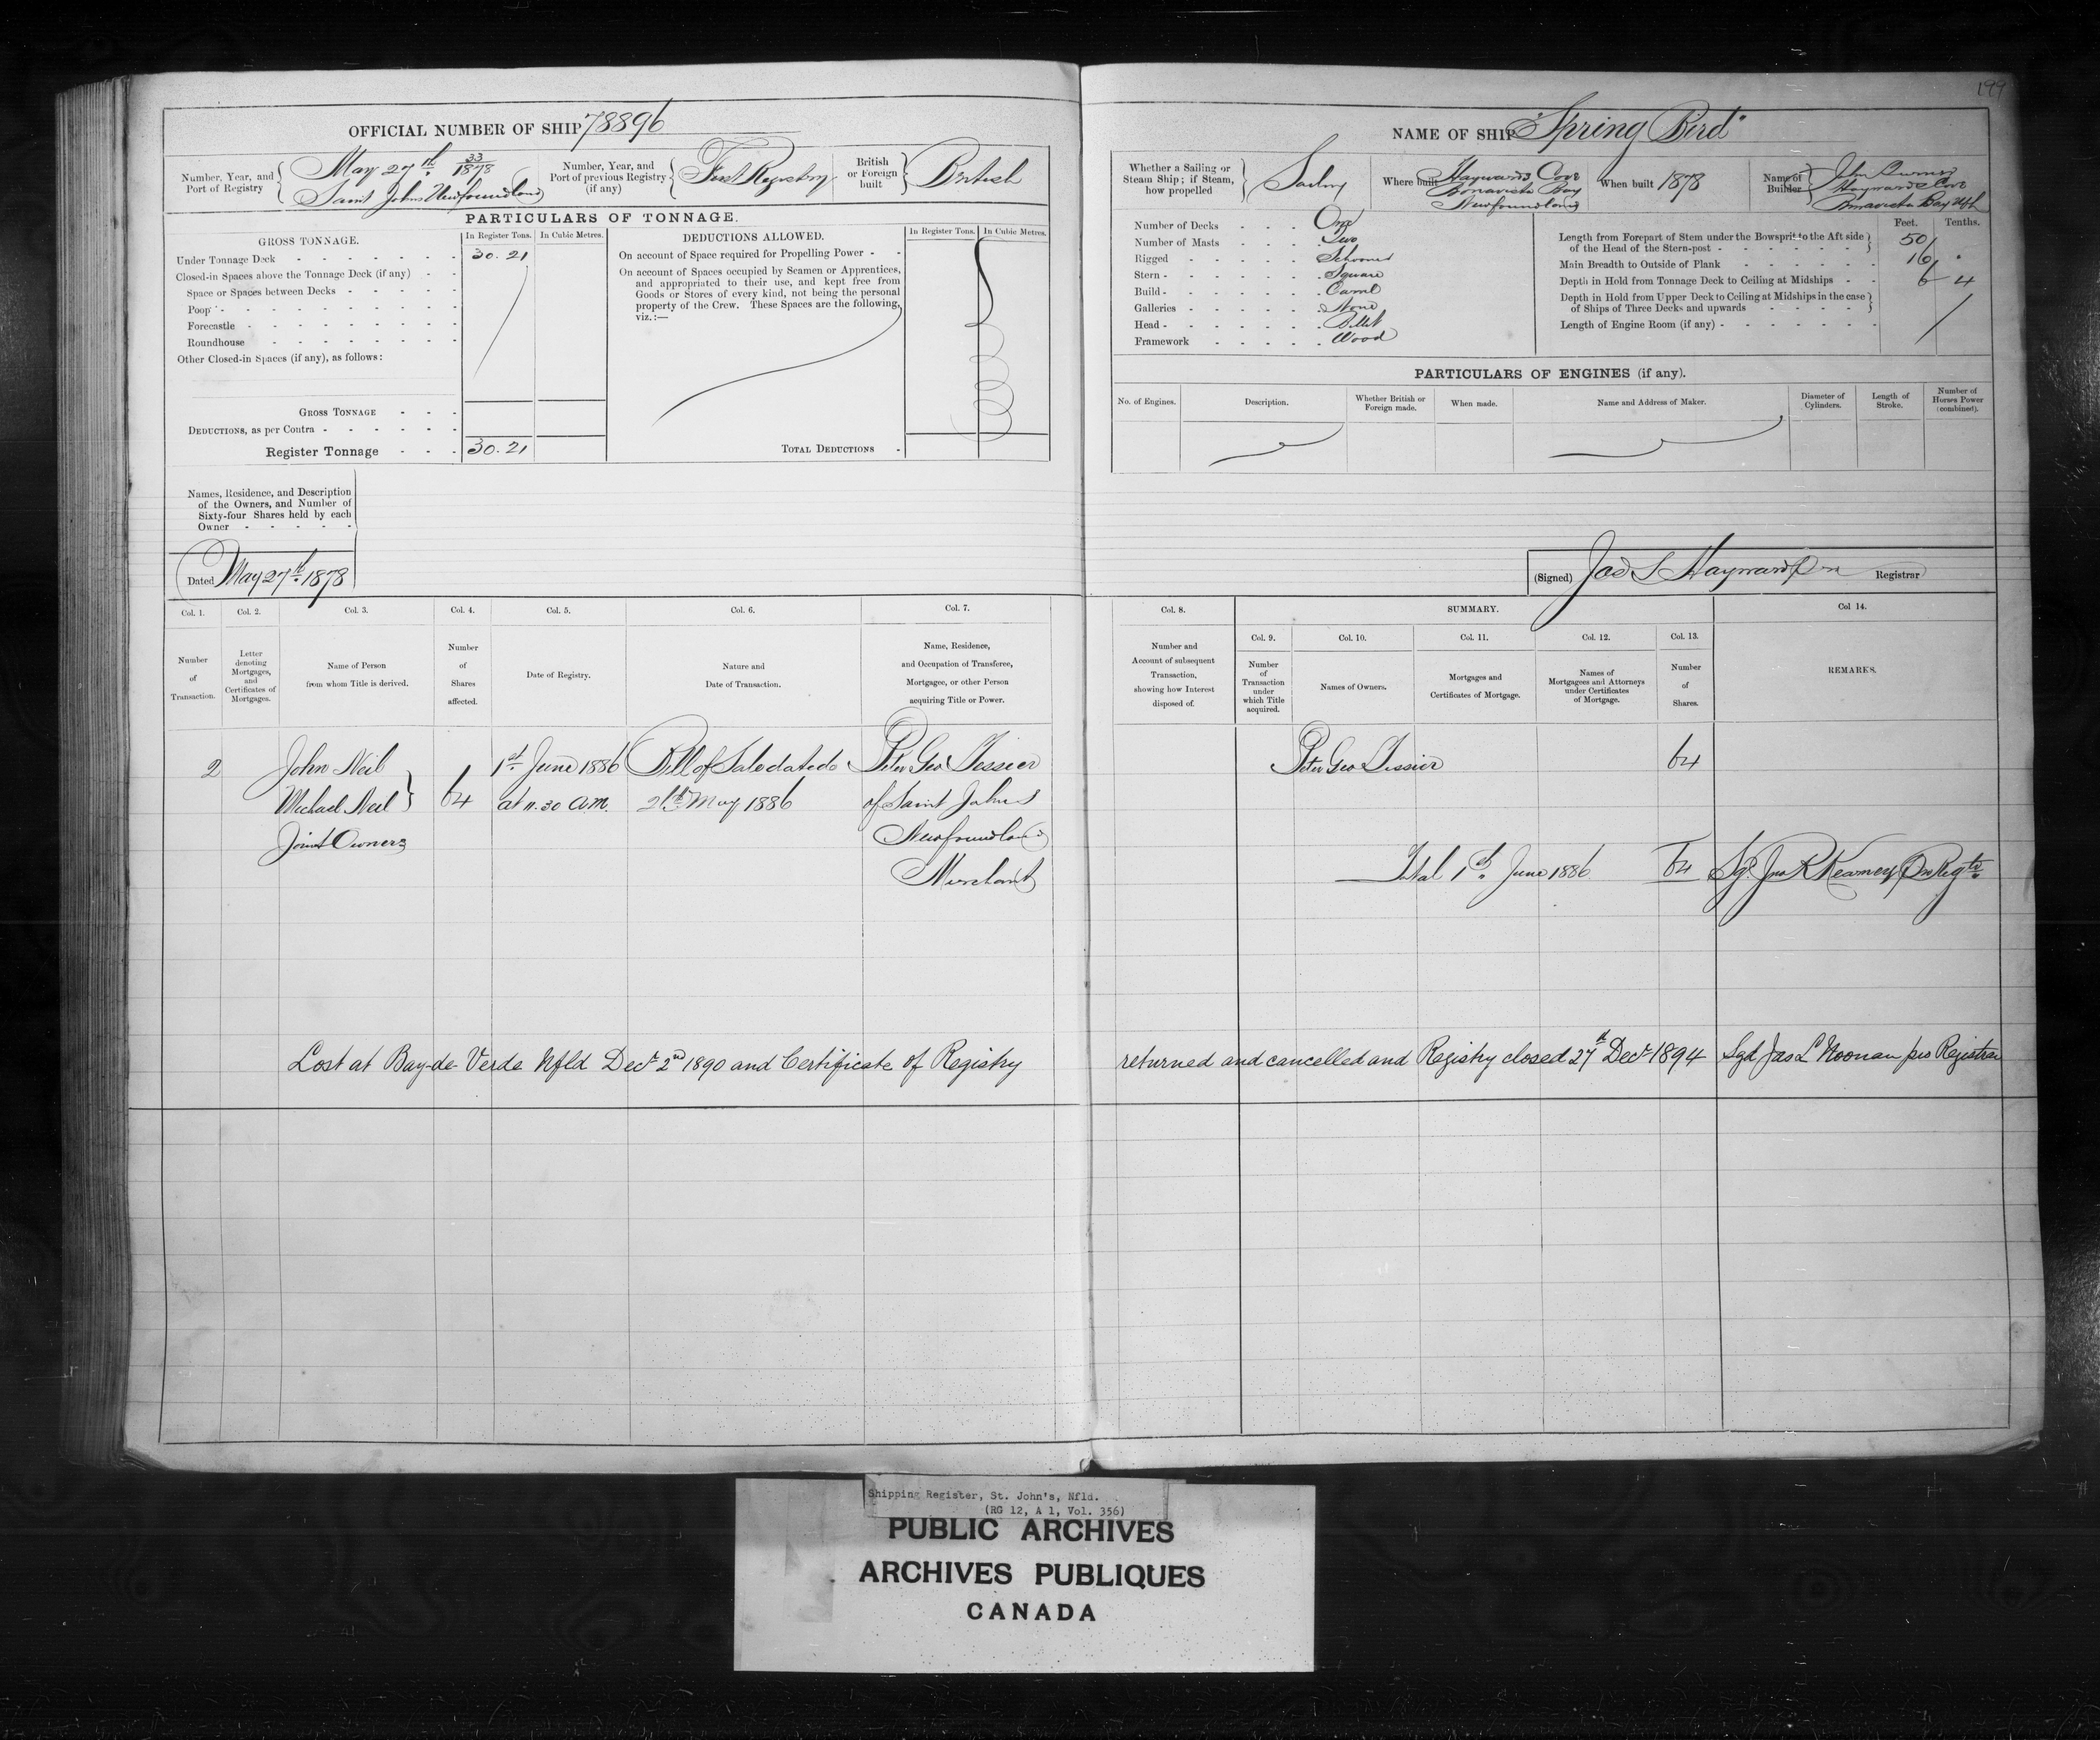 199
OFFICIAL NUMBER OF SHIP 78896
Number, Year, and Port of Registry
May 27th 33/1878
Saint Johns Newfoundland
Number, Year, and Port of previous Registry (if any)
First Registry
British or Foreign built
British
PARTICULARS OF TONNAGE.
GROSS TONNAGE.
In Register Tons.
In Cubic Metres.
Under Tonnage Deck 30.21
Closed-in Spaces above the Tonnage Deck (if any)
Space or Spaces between Decks
Poop
Forecastle
Roundhouse
Other Closed-in Spaces (if any), as follows:
GROSS TONNAGE
DEDUCTIONS, as per Contra
Register Tonnage 30.21
DEDUCTIONS ALLOWED.
In Register Tons.
In Cubic Metres.
On account of Space required for Propelling Power
On account of Spaces occupied by Seamen or Apprentices,
and appropriated to their use, and kept free from
Goods or Stores of every kind, not being the personal
property of the Crew. These Spaces are the following,
viz.:—
TOTAL DEDUCTIONS
Names, Residence, and Description
of the Owners, and Number of
Sixty-four Shares held by each
Owner
Dated May 27th 1878
NAME OF SHIP "Spring Bird"
Whether a Sailing or
Steam Ship; if Steam,
how propelled
Sailing
Where built
Haywards Cove
Bonavista Bay
Newfoundland
When built 1878
Name of Builder
John
Haywards Cove
Bonavista Bay Nfld
Number of Decks One
Number of Masts Two
Rigged Schooner
Stern Square
Build Carvel
Galleries None
Head Billet
Framework Wood
Feet. Tenths.
Length from Forepart of Stem under the Bowsprit to the Aft side
of the Head of the Stern-post 50
Main Breadth to Outside of Plank 16
Depth in Hold from Tonnage Deck to Ceiling at Midships 6 4
Depth in Hold from Upper Deck to Ceiling at Midships in the case
of Ships of Three Decks and upwards
Length of Engine Room (if any)
PARTICULARS OF ENGINES (if any).
No. of Engines.
Description.
Whether British or Foreign made.
When made.
Name and Address of Maker.
Diameter of Cylinders.
Length of Stroke.
Number of Horses Power (combined).
(Signed) Jas S Hayward Registrar
Col. 1. Col. 2. Col. 3. Col. 4. Col. 5. Col. 6. Col. 7.
Number of Transaction.
Letter denoting Mortgages, and Certificates of Mortgages.
Name of Person from whom Title is derived.
Number of Shares affected.
Date of Registry.
Nature and Date of Transaction.
Name, Residence, and Occupation of Transferee, Mortgagee, or other Person acquiring Title or Power.
Col. 8. SUMMARY. Col 14.
Col. 9. Col. 10. Col. 11. Col. 12. Col. 13.
Number and Account of subsequent Transaction, showing how Interest disposed of.
Number of Transaction under which Title acquired.
Names of Owners.
Mortgages and Certificates of Mortgage.
Names of Mortgagees and Attorneys under Certificates of Mortgage.
Number of Shares.
REMARKS.
2 John Neil 1st June 1886 Bill of Sale dated Peter Geo Tessier
Michael Neil 64 at 11.30 a.m. May 1886 of Saint Johns
Joint Owners Newfoundland
Merchant
Peter Geo Tessier 64
Total 1st June 1886 64 Sgd Jno R Kearney Pro Regtr
Lost at Bay-de-Verde Nfld Decr 2nd 1890 and Certificate of Registry returned and cancelled and Registry closed 27th Decr 1894 Sgd Jas L Noonan pro Registrar
Shipping Register, St. John's, Nfld.
(RG 12, A 1, Vol. 356)
PUBLIC ARCHIVES
ARCHIVES PUBLIQUES
CANADA